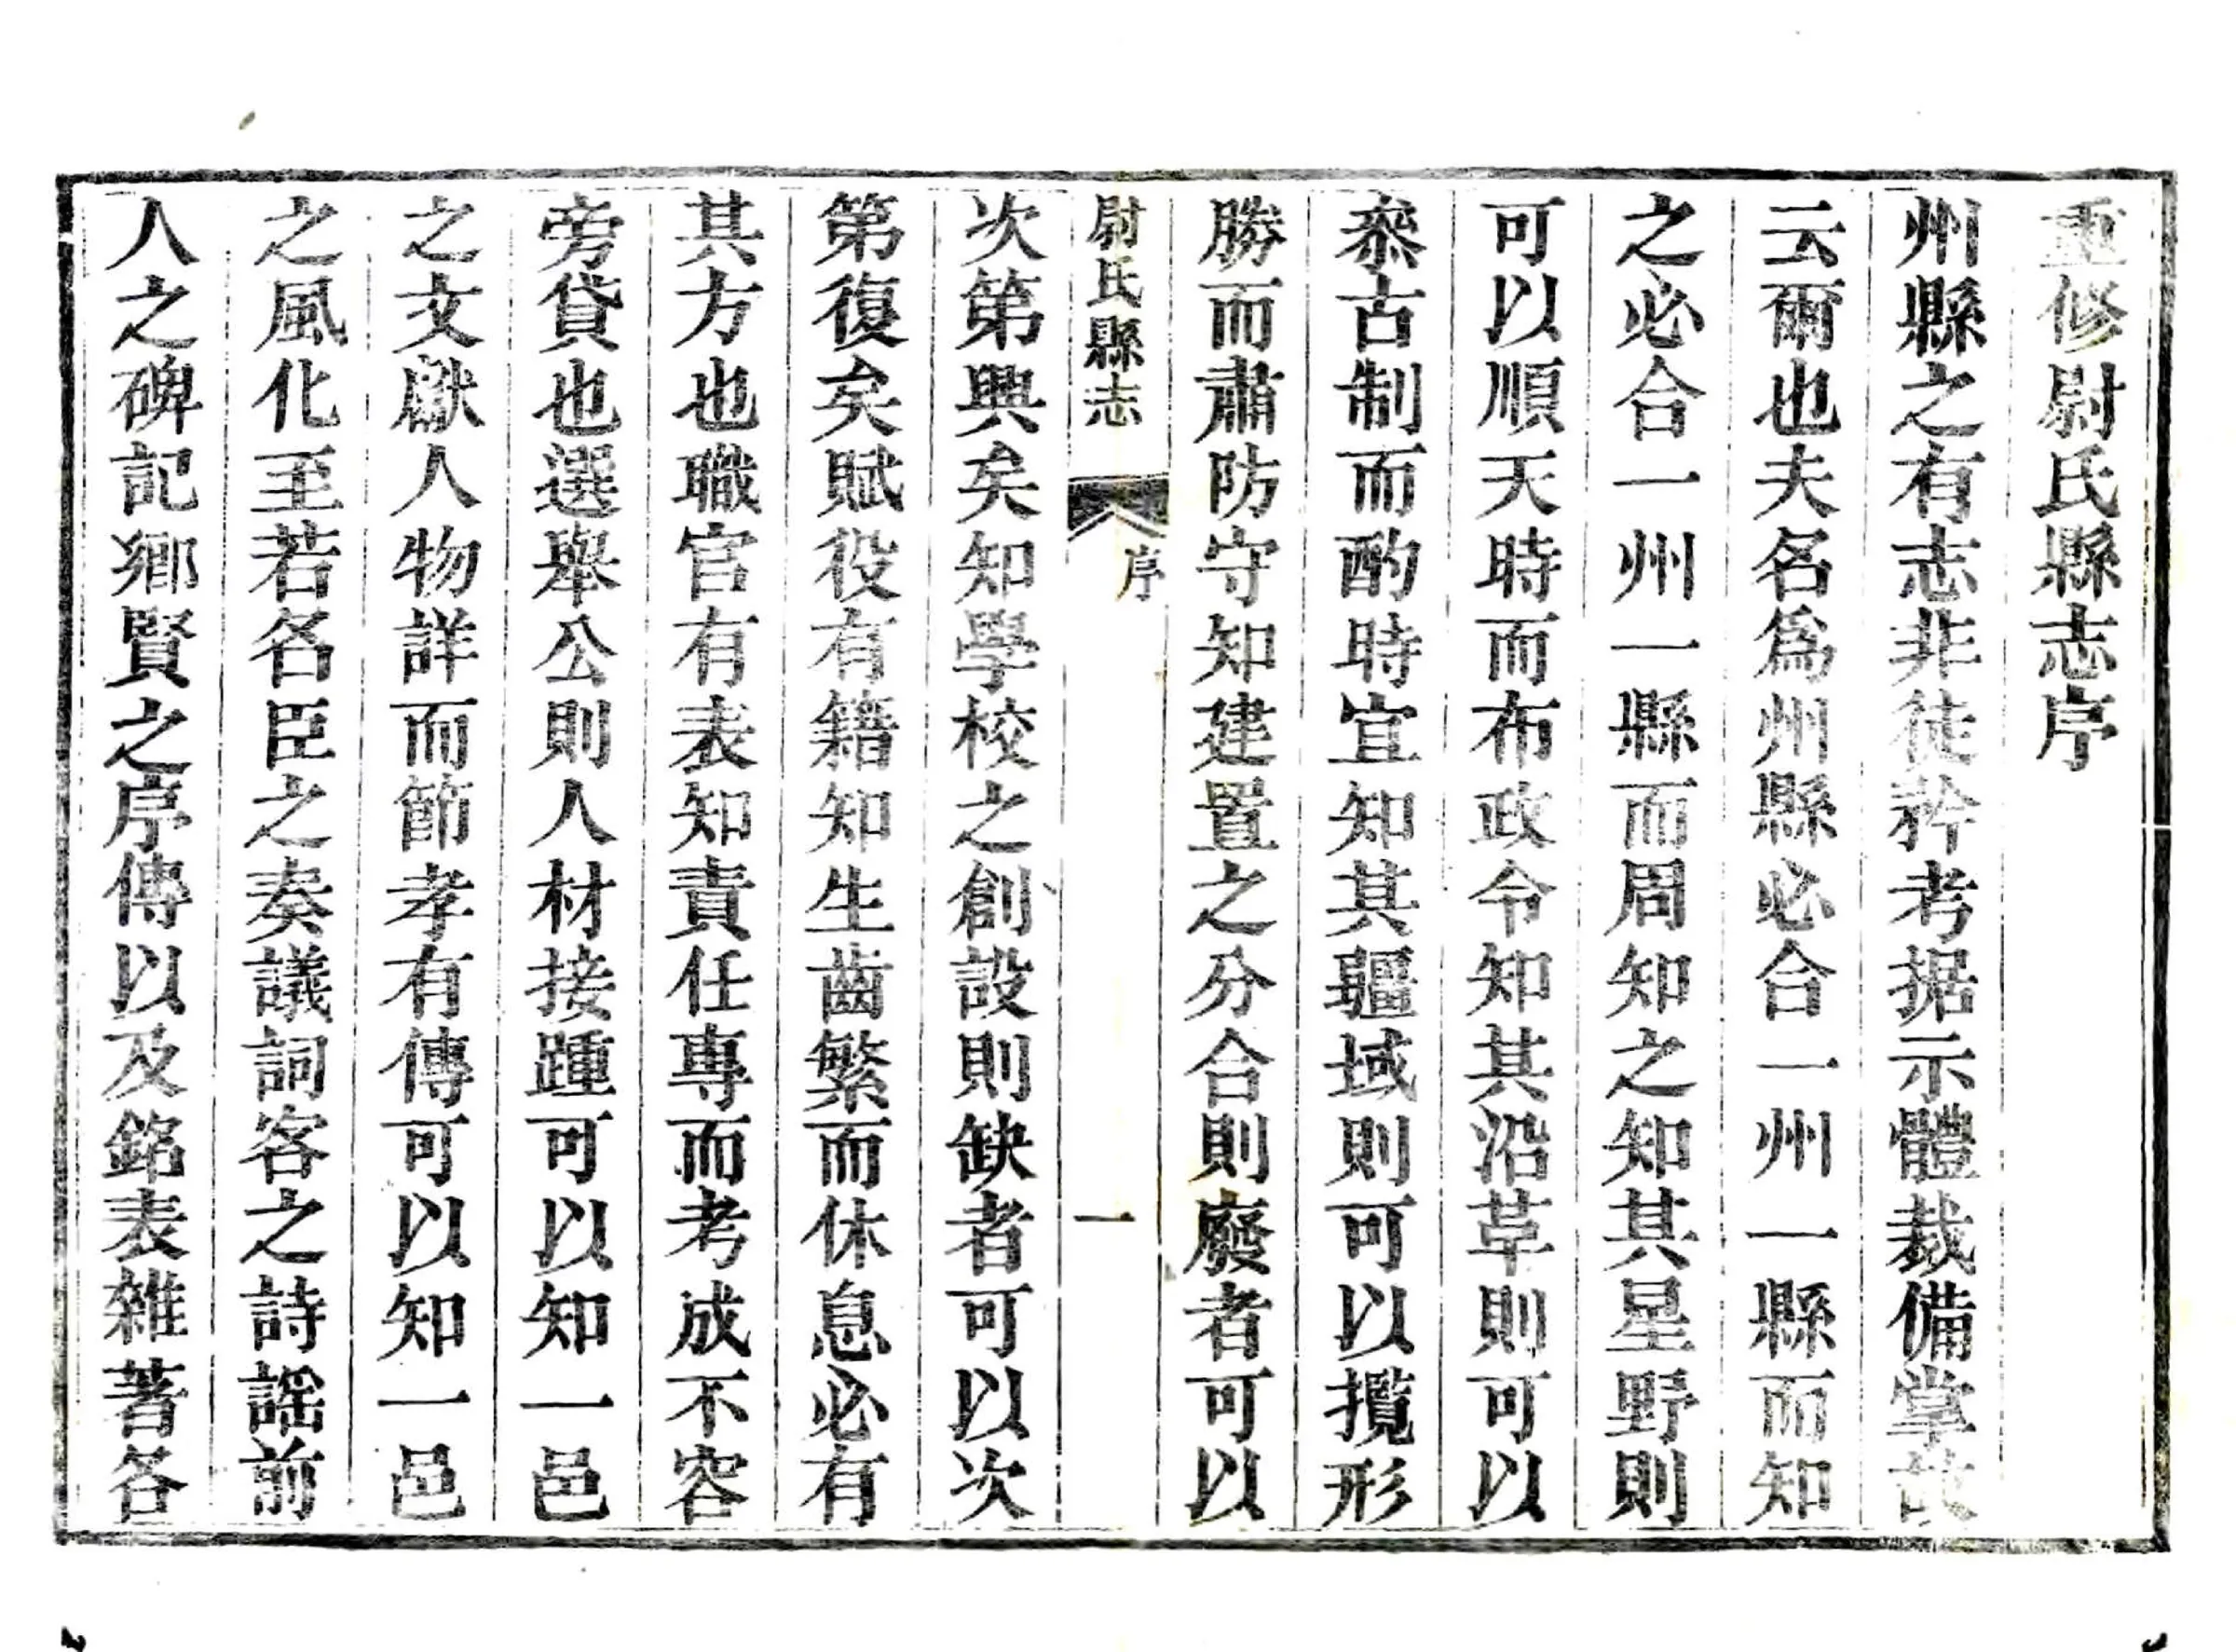 重修尉氏縣志序
州縣之有志非徒矜考据示體裁備掌故
云爾也夫名爲州縣必合一州一縣而知
之必合一州一縣而周知之知其星野則
可以順天時而布政令知其沿革則可以
叅古制而酌時宜知其疆域則可以攬形
勝而肅防守知建置之分合則廢者可以
尉氏縣志
序
一
次第興矣知學校之創設則缺者可以次
第復矣賦役有籍知生齒繁而休息必有
其方也職官有表知責任專而考成不容
旁貸也選舉公則人材接踵可以知一邑
之文獻人物詳而節孝有傳可以知一邑
之風化至若名臣之奏議詞客之詩謠前
人之碑記鄉賢之序傳以及銘表雜著各